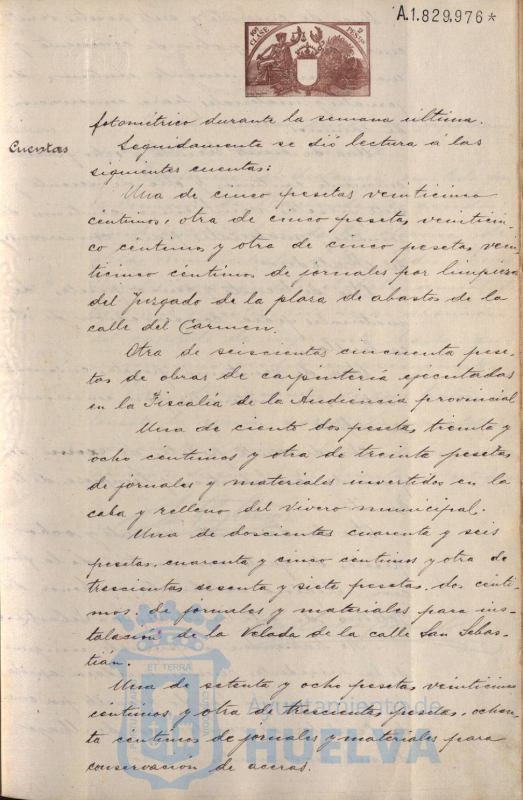 A.1.829,976*
10ª CLASE
2 PESETAS
fotométrico durante la semana última.
Cuentas
Seguidamente se dió lectura á las
siguientes cuentas:
Una de cinco pesetas veinticinco
céntimos, otra de cinco pesetas veinticin-
co céntimos y otra de cinco pesetas vein-
ticinco céntimos de jornales por limpieza
del Juzgado de la plaza de abastos de la
calle del Carmen.
Otra de seiscientas cincuenta pese-
tas de obras de carpintería ejecutadas
en la Fiscalía de la Audiencia provincial
Una de ciento dos pesetas treinta y
ocho céntimos y otra de treinta pesetas
de jornales y materiales invertidos en la
caba y relleno del Vivero municipal.
Una de doscientas cuarenta y seis
pesetas, cuarenta y cinco céntimos y otra de
trescientas sesenta y siete pesetas, dos cénti-
mos, de jornales y materiales para ins-
talación de la Velada de la calle San Sebas-
tián.
Una de setenta y ocho pesetas veinticinco
céntimos y otra de trescientas pesetas, ochen-
ta céntimos de jornales y materiales para
conservación de aceras.
ET TERRA
Ayuntamiento de
HUELVA